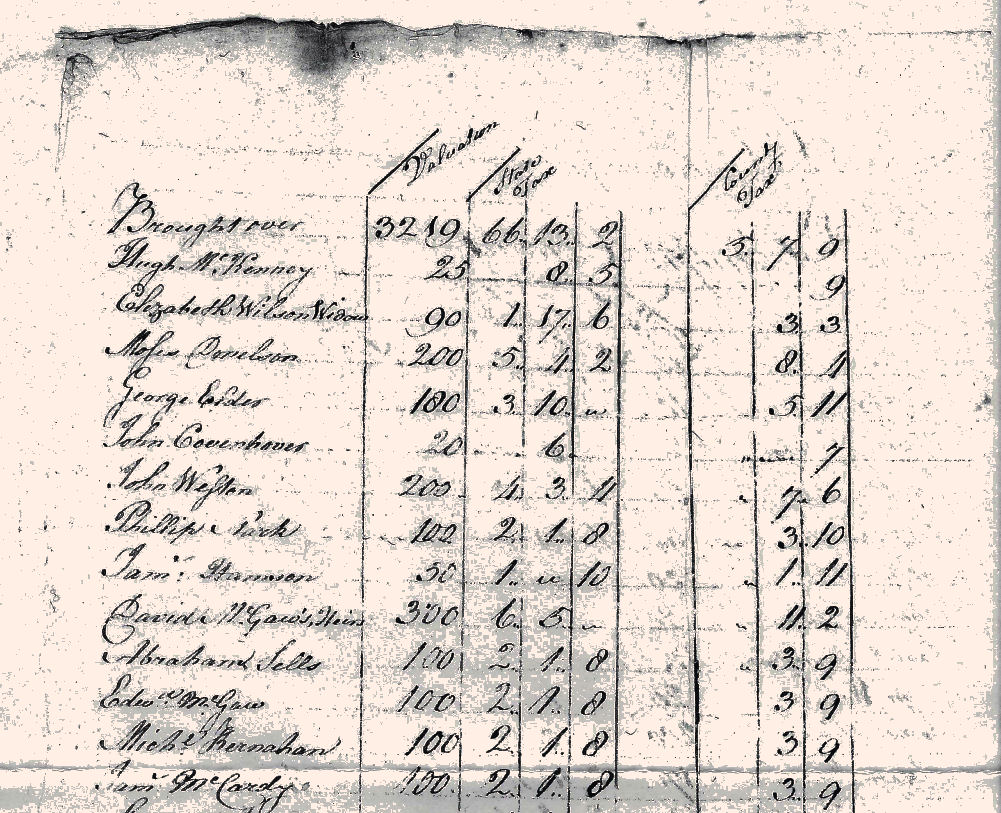 Valuation State Tax County Tax
Brought over 3219 66. 13. 2 5. 7. 9
Hugh McKenney 25 8. 5 9
Elizabeth Wilson Widow 90 1. 17. 6 3 3
Moses Donelson 200 5. 4. 2 8. 4
George Elder 180 3 10. " 5 11
John Covenhover 20 6. 7
John Weston 200 4. 3. 4 7. 6
Phillip 100 2. 1. 8 3. 10
Jams. Hannson 50 1. " 10 1. 11
David McGaw's Heirs 300 6. 5. " 11. 2
Abraham Sells 100 2. 1. 8 3. 9
Edwd. McGaw 100 2. 1. 8 3 9
Michl. Kernahan 100 2. 1. 8 3 9
Jams. McCardy 100 2. 1. 8 3. 9